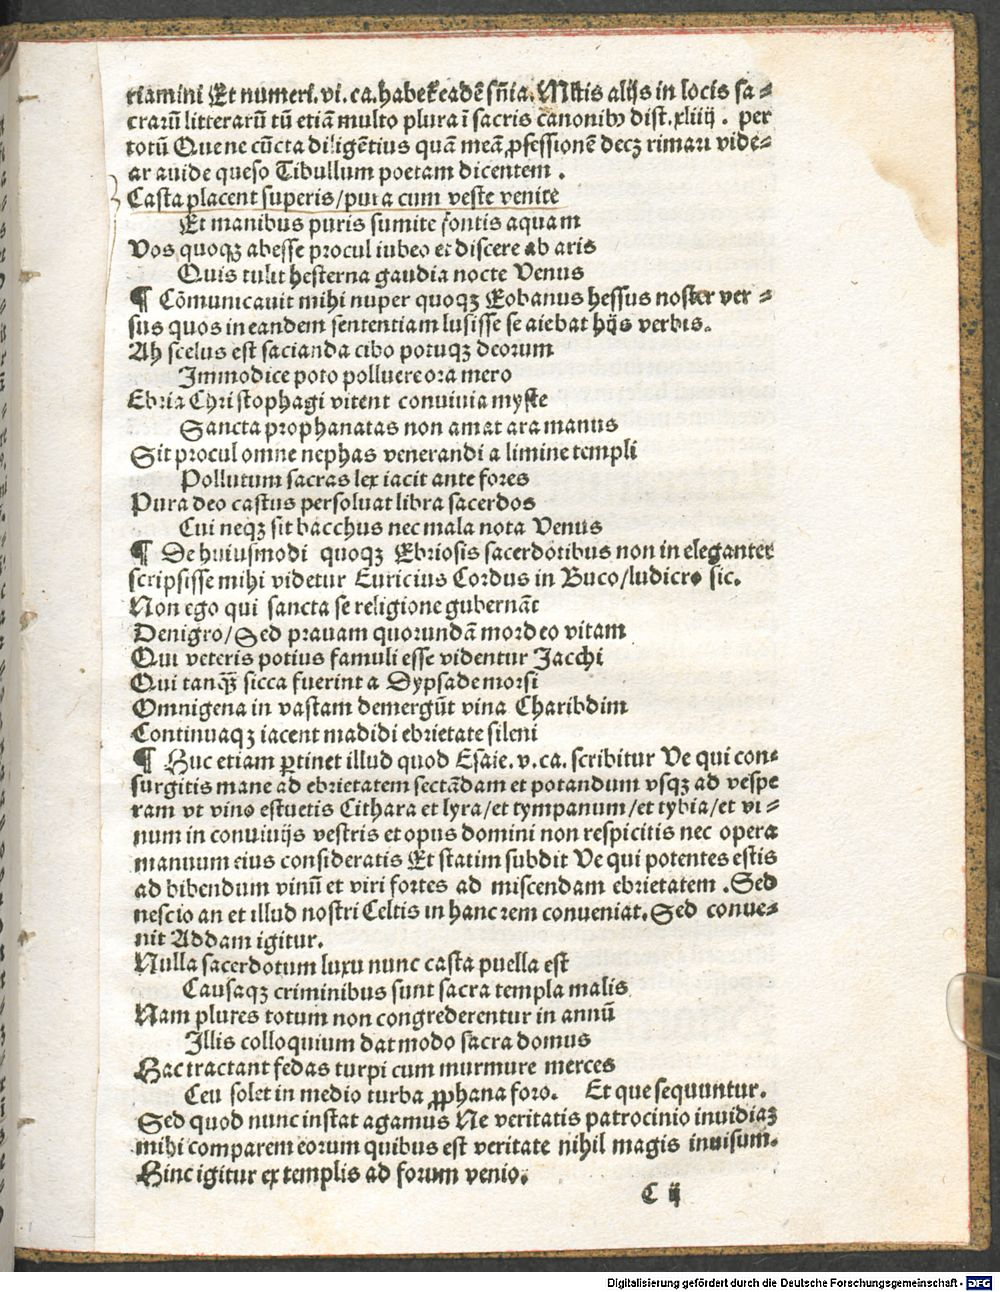 riamini Et numeri. vi. ca. habet̉ eadē sn̄ia. Mltis alijs in locis sa⸗
crarū litterarū tū etiā multo plura ī sacris canonibꝰ dist. xliiij . per
totū Que ne cūcta diligētius quā meā ꝓfessionē decꝫ rimari vide⸗
ar auide queso Tibullum poetam dicentem .
Casta placent superis/pura cum veste venite
Et manibus puris sumite fontis aquam
Vos quoqꝫ abesse procul iubeo et discere ab aris
Quis tulit hesterna gaudia nocte Venus
¶ Cōmunicauit mihi nuper quoqꝫ Eobanus hessus noster ver ⸗
sus quos in eandem sententiam lusisse se aiebat hijs verbis.
Ah scelus est sacianda cibo potuqꝫ deorum
Immodice poto polluere ora mero
Ebria Christophagi vitent conuiuia myste
Sancta prophanatas non amat ara manus
Sit procul omne nephas venerandi a limine templi
Pollutum sacras lex iacit ante fores
Pura deo castus persoluat libra sacerdos
Cui neqꝫ sit bacchus nec mala nota Venus
¶ De huiusmodi quoqꝫ Ebriosis sacerdotibus non in eleganter
scripsisse mihi videtur Euricius Cordus in Buco/ludicro sic.
Non ego qui sancta se religione gubernāt
Denigro/Sed prauam quorundā mordeo vitam
Qui veteris potius famuli esse videntur Jacchi
Qui tanqꝫ̄ sicca fuerint a Dypsade morsi
Omnigena in vastam demergūt vina Charibdim
Continuaqꝫ iacent madidi ebrietate sileni
¶ Huc etiam ꝑtinet illud quod Esaie. v. ca. scribitur Ve qui con⸗
surgitis mane ad ebrietatem sectādam et potandum vsqꝫ ad vespe
ram vt vino estuetis Cithara et lyra/et tympanum/et tybia/et vi ⸗
num in conuiuijs vestris et opus domini non respicitis nec opera
manuum eius consideratis Et statim subdit Ve qui potentes estis
ad bibendum vinū et viri fortes ad miscendam ebrietatem .Sed
nescio an et illud nostri Celtis in hanc rem conueniat. Sed conue⸗
nit Addam igitur.
Nulla sacerdotum luxu nunc casta puella est
Causaqꝫ criminibus sunt sacra templa malis
Nam plures totum non congrederentur in annū
Illis colloquium dat modo sacra domus
Hac tractant fedas turpi cum murmure merces
Ceu solet in medio turba ꝓphana foro. Et que sequuntur.
Sed quod nunc instat agamus Ne veritatis patrocinio inuidiaꝫ
mihi comparem eorum quibus est veritate nihil magis inuisum.
Hinc igitur ex templis ad forum venio.
C ij
Digitalisierung gefördert durch die Deutsche Forschungsgemeinschaft - DFG